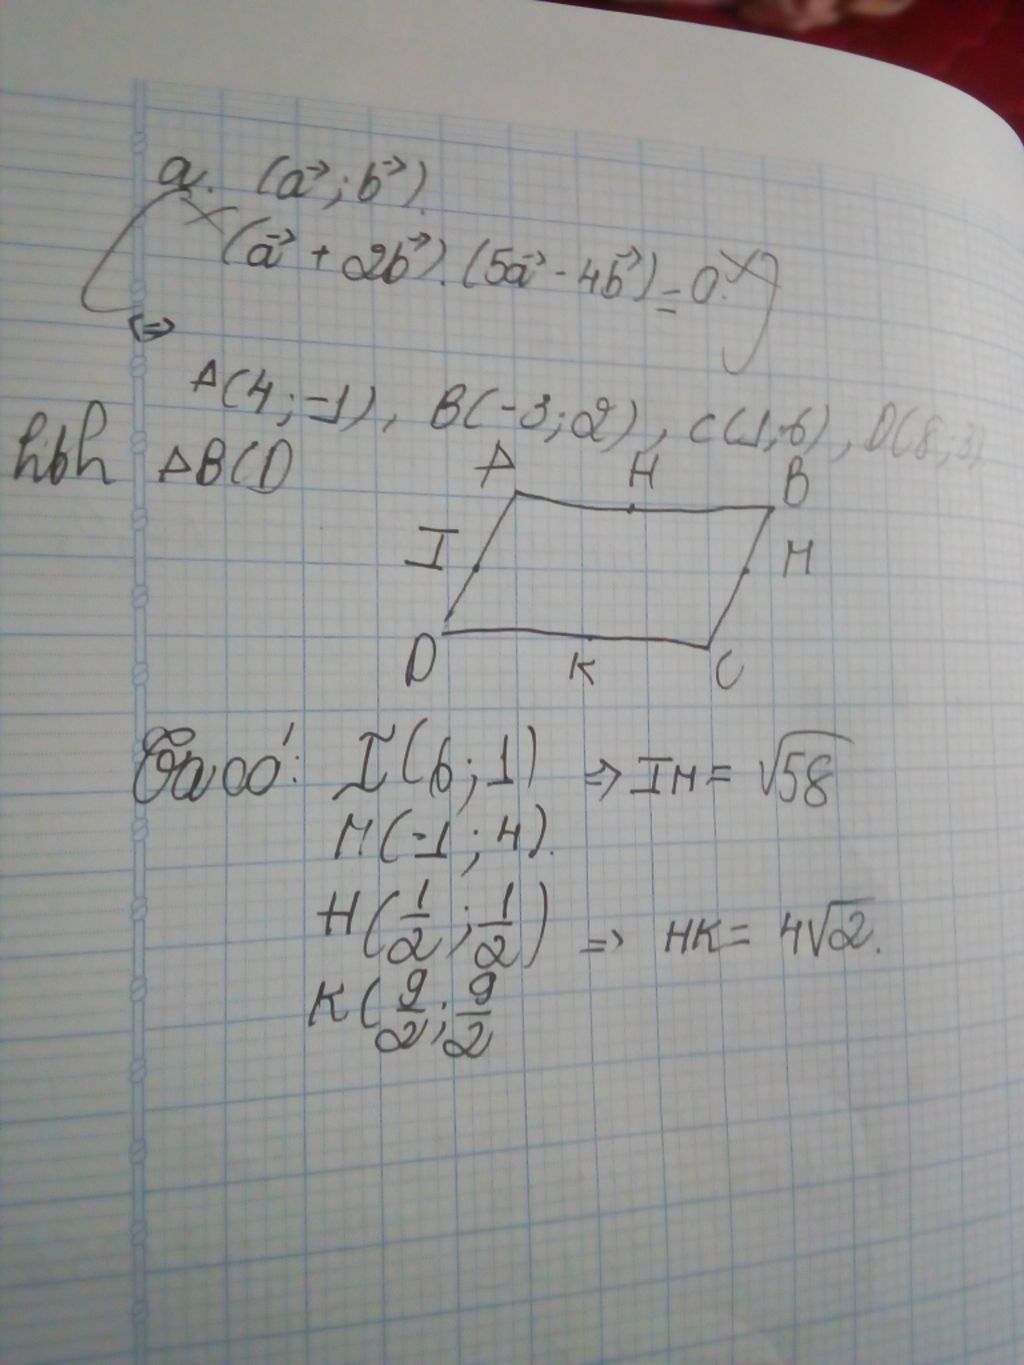 a. (a⃗ ; b⃗).
(a⃗ + 2b⃗).(5a⃗ - 4b⃗) = 0.
<=>
A(4;-1), B(-3;2), C(1;6), D(8;3)
hbh ABCD
A H B
I M
D K C
Ta có: I(6;1) => IM = √58
M(-1;4).
H(1/2;1/2) => HK = 4√2.
K(9/2;9/2